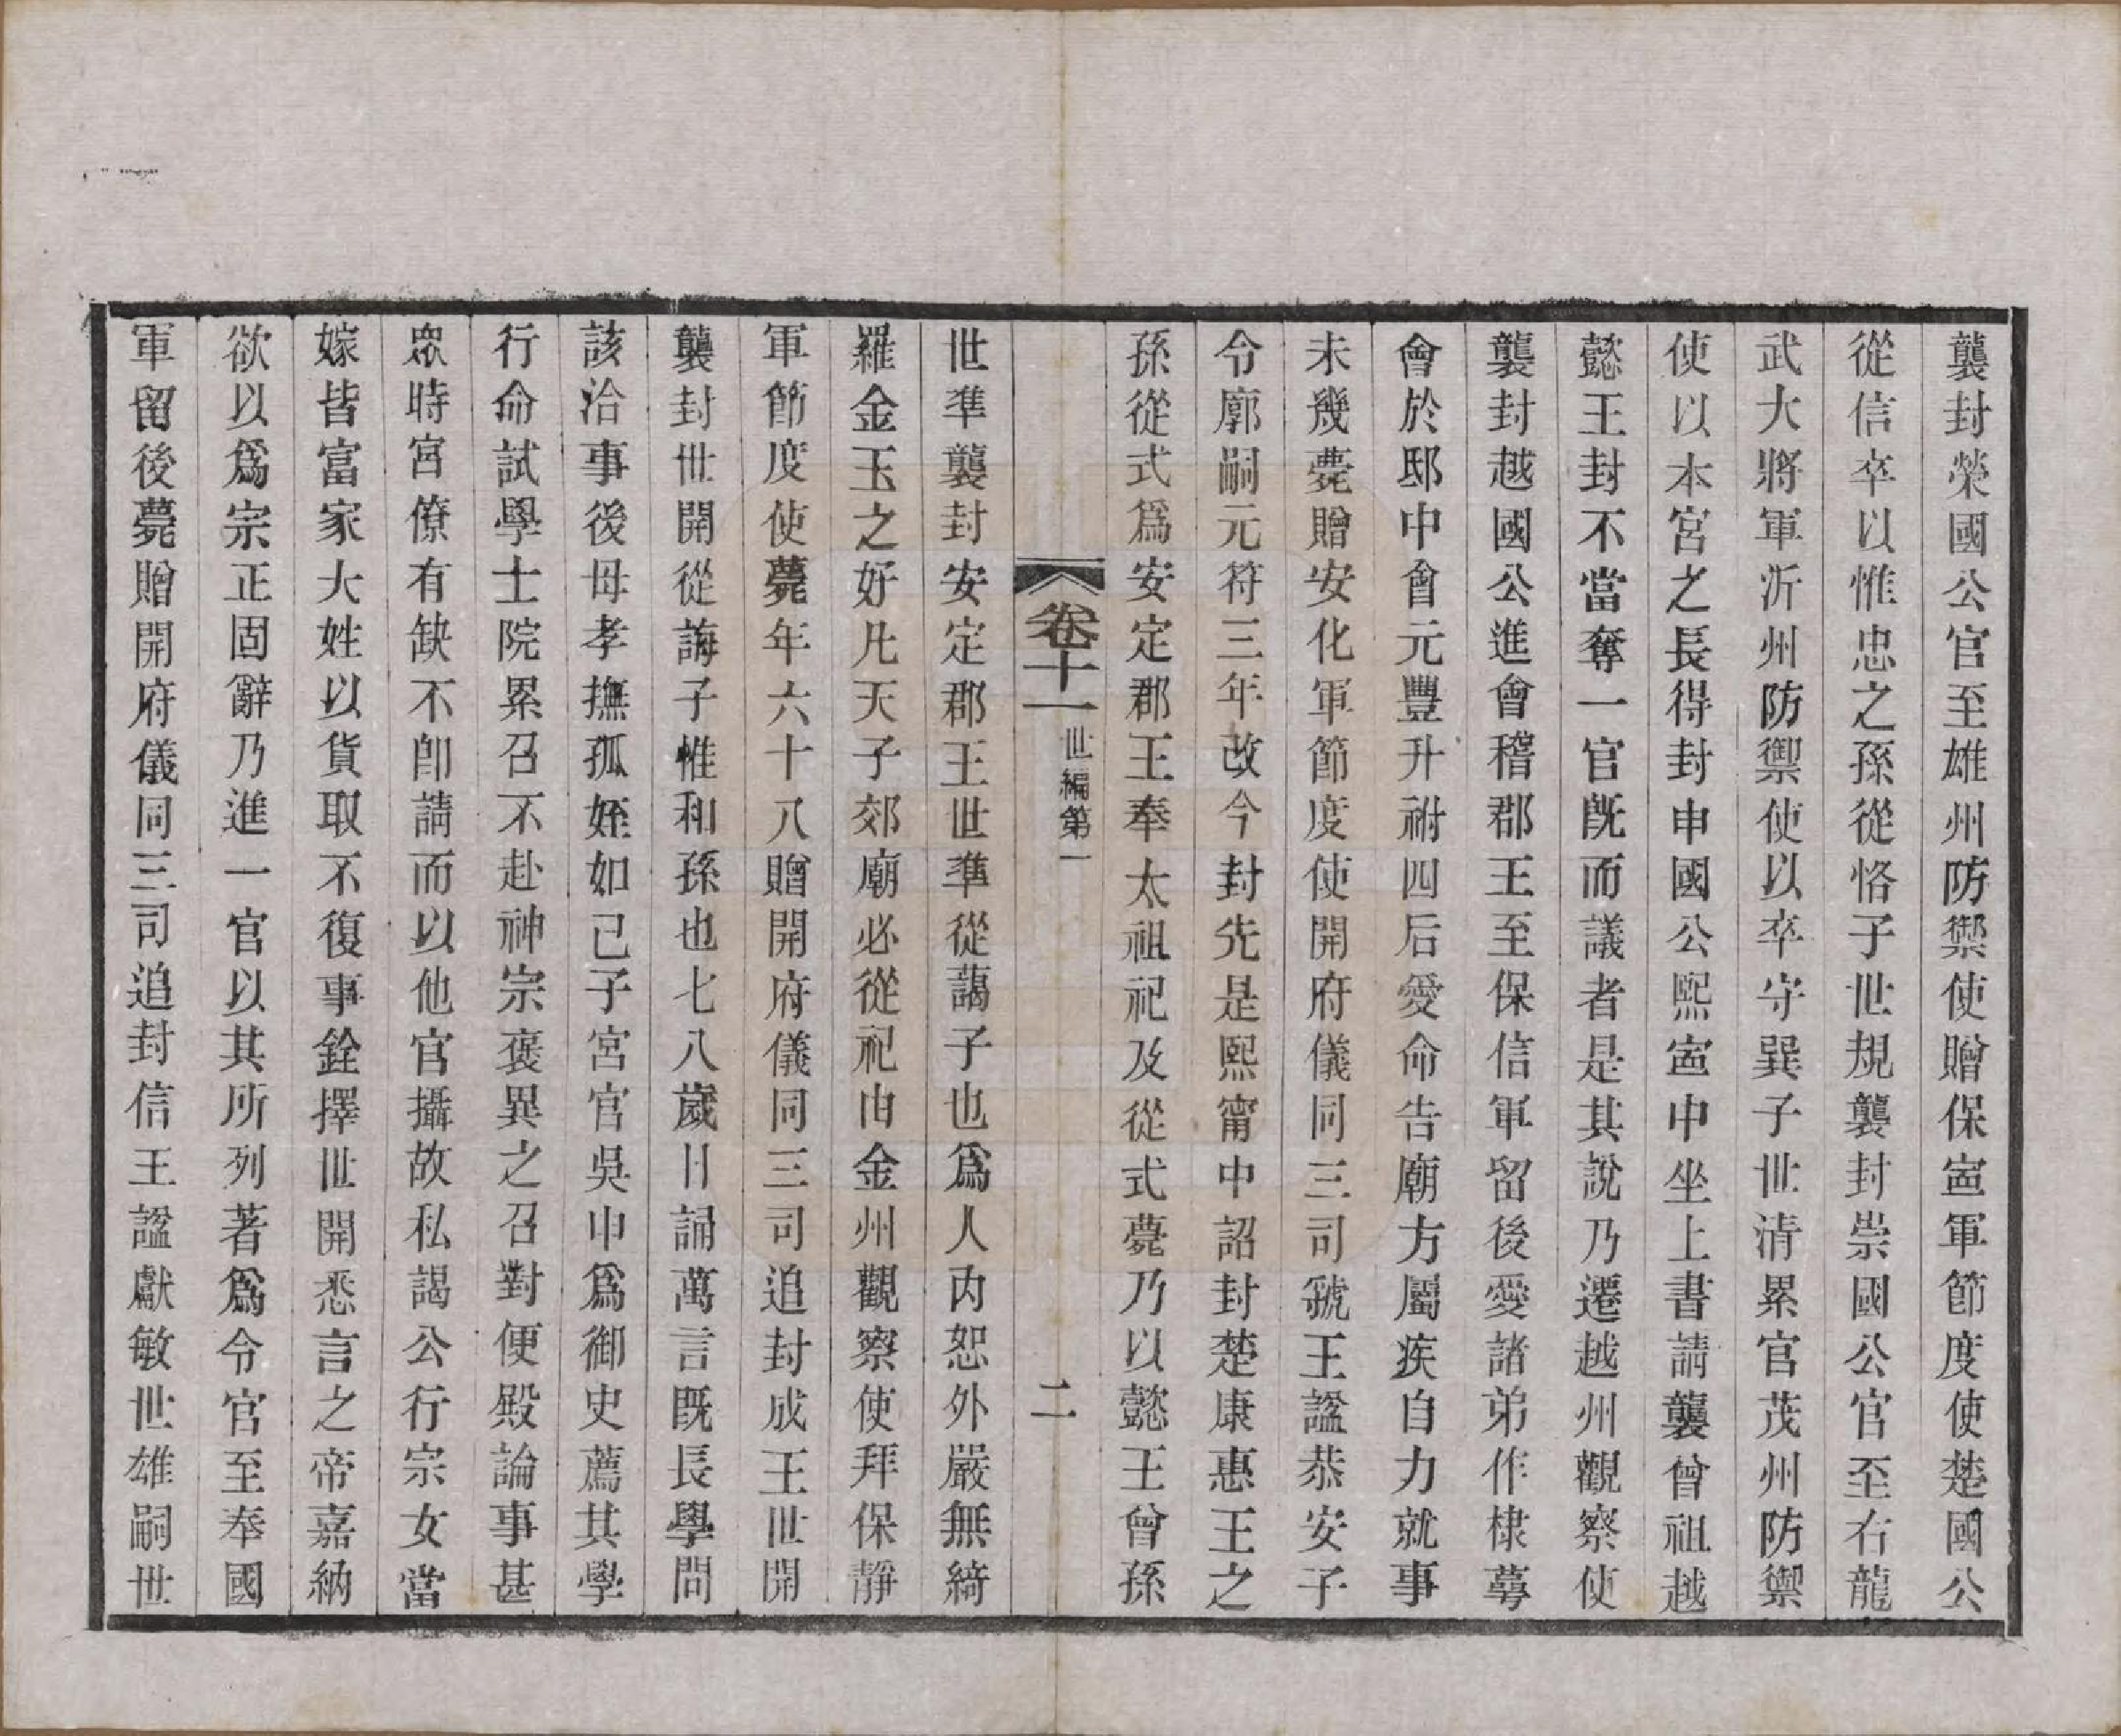 襲封榮國公官至雄州防禦使贈保寍軍節度使楚國公
從信卒以惟忠之孫從恪子世規襲封崇國公官至右龍
武大將軍沂州防禦使以卒守巽子世清累官茂州防禦
使以本宮之長得封申國公熙寍中坐上書請襲曾祖越
懿王封不當奪一官旣而議者是其說乃遷越州觀察使
襲封越國公進會稽郡王至保信軍留後愛諸弟作棣萼
會於邸中會元豐升祔四后愛命告廟方屬疾自力就事
未幾薨贈安化軍節度使開府儀同三司虢王諡恭安子
令廓嗣元符三年改今封先是熙甯中詔封楚康惠王之
孫從式爲安定郡王奉太祖祀及從式薨乃以懿王曾孫
卷十一世編第一 二
世準襲封安定郡王世準從藹子也爲人內恕外嚴無綺
羅金玉之好凡天子郊廟必從祀由金州觀察使拜保靜
軍節度使薨年六十八贈開府儀同三司追封成王世開
襲封世開從誨子惟和孫也七八歲日誦萬言旣長學問
該洽事後母孝撫孤姪如己子宮官吳申爲御史薦其學
行命試學士院累召不赴神宗褒異之召對便殿論事甚
眾時宮僚有缺不卽請而以他官攝故私謁公行宗女當
嫁皆富家大姓以貨取不復事銓擇世開悉言之帝嘉納
欲以爲宗正固辭乃進一官以其所列著爲令官至奉國
軍留後薨贈開府儀同三司追封信王諡獻敏世雄嗣世